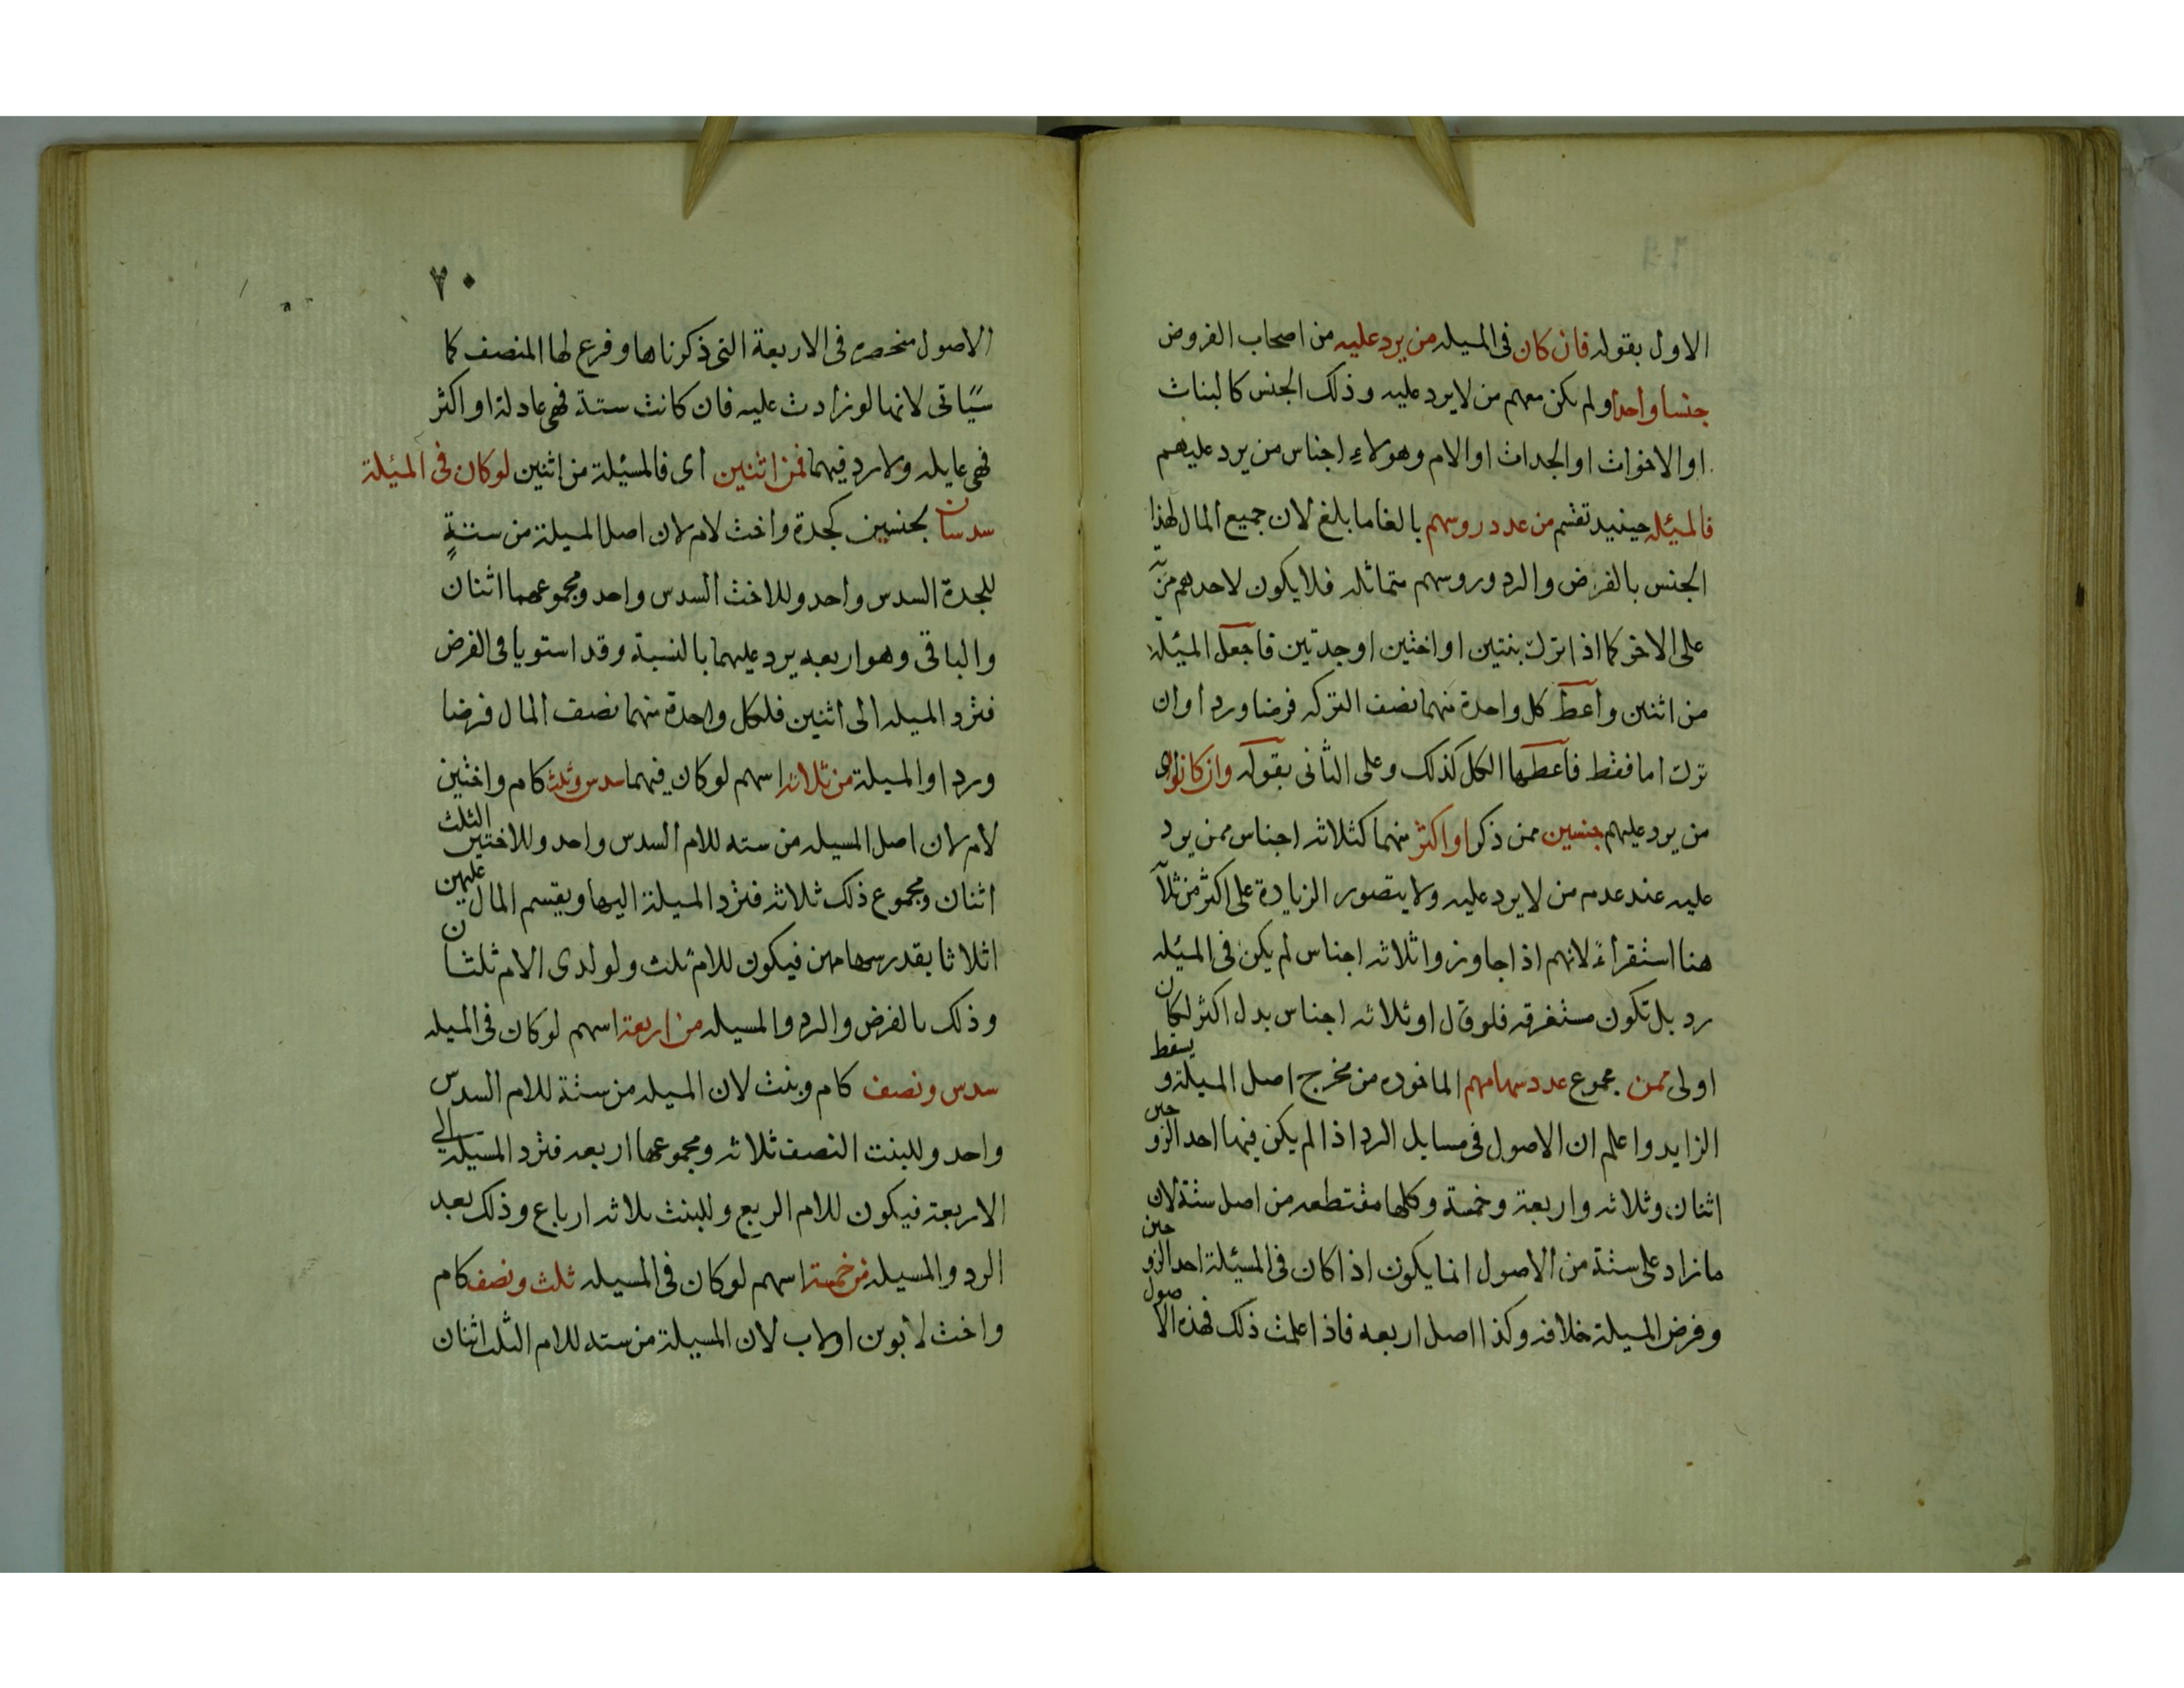 الاول بقوله فان كان فى المسيله من يرد عليه من اصحاب الفروض
جنسا واحدا ولم يكن معهم من لا يرد عليه وذلك الجنس كالبنات
او الاخوات او الجدات او الام وهولاء اجناس من يرد عليهم
فالمسئله حينيد تقسم من عدد روسهم بالغا ما بلغ لان جميع المال لهذا
الجنس بالفرض والرد وروسهم متماثله فلا يكون لاحدهم مزية
على الاخر كما اذا ترك بنتين او اختين او جدتين فاجعل المسئله
من اثنين واعط كل واحدة منهما نصف التركه فرضا وردا وان
ترك اما فقط فاعطها الكل كذلك وعلى الثانى بقوله وان كانوا اى
من يرد عليهم جنسين ممن ذكر او اكثر منهما كثلاثه اجناس ممن يرد
عليه عند عدم من لا يرد عليه ولا يتصور الزيادة على اكثر من ثلاثة
هنا استقراءً لانهم اذا جاوزوا ثلاثه اجناس لم يكن فى المسئله
رد بل تكون مستغرقه فلو قال او ثلاثه اجناس بدل اكثر لكان
اولى فمن مجموع عدد سهامهم الماخوده من مخرج اصل المسيلة ويسقط
الزايد واعلم ان الاصول فى مسايل الرد اذا لم يكن فيها احد الزوجين
اثنان وثلاثه واربعة وخمسة وكلها مقتطعه من اصل ستة لان
ما زاد على ستة من الاصول انما يكون اذا كان فى المسئلة احد الزوجين
وفرض المسيلة خلافه وكذا اصل اربعه فاذا علمت ذلك فهذه الاصول
٧٠
الاصول منحصره فى الاربعة التى ذكرناها وفرع لها المنصف كما
سياتى لانها لو زادت عليه فان كانت ستة فهى عادلة او اكثر
فهى عايله ولا رد فيهما فمن اثنين اى فالمسئيلة من اثنين لو كان فى المسئلة
سدسان لجنسين كجدة واخت لام لان اصل المسيلة من ستةٍ
للجدة السدس واحد وللاخت السدس واحد ومجموعهما اثنان
والباقى وهو اربعه يرد عليهما بالنسبة وقد استويا فى الفرض
فترد المسيله الى اثنين فلكل واحدة منهما نصف المال فرضا
وردا والمسيلة من ثلاثه اسهم لو كان فيهما سدس وثلث كام واختين
لام لان اصل المسيله من سته للام السدس واحد وللاختين الثلث
اثنان ومجموع ذلك ثلاثه فترد المسيلة اليها ويقسم المال عليهن
اثلاثا بقدر سهامهن فيكون للام ثلث ولولدى الام ثلثان
وذلك بالفرض والرد والمسيله من اربعة اسهم لو كان فى المسيله
سدس ونصف كام وبنت لان المسيله من ستة للام السدس
واحد وللبنت النصف ثلاثه ومجموعها اربعه فترد المسيله الى
الاربعة فيكون للام الربع وللبنت ثلاثه ارباع وذلك بعد
الرد والمسيله من خمسة اسهم لو كان فى المسيله ثلث ونصف كام
واخت لابوين او لاب لان المسيلة من سته للام الثلث اثنان